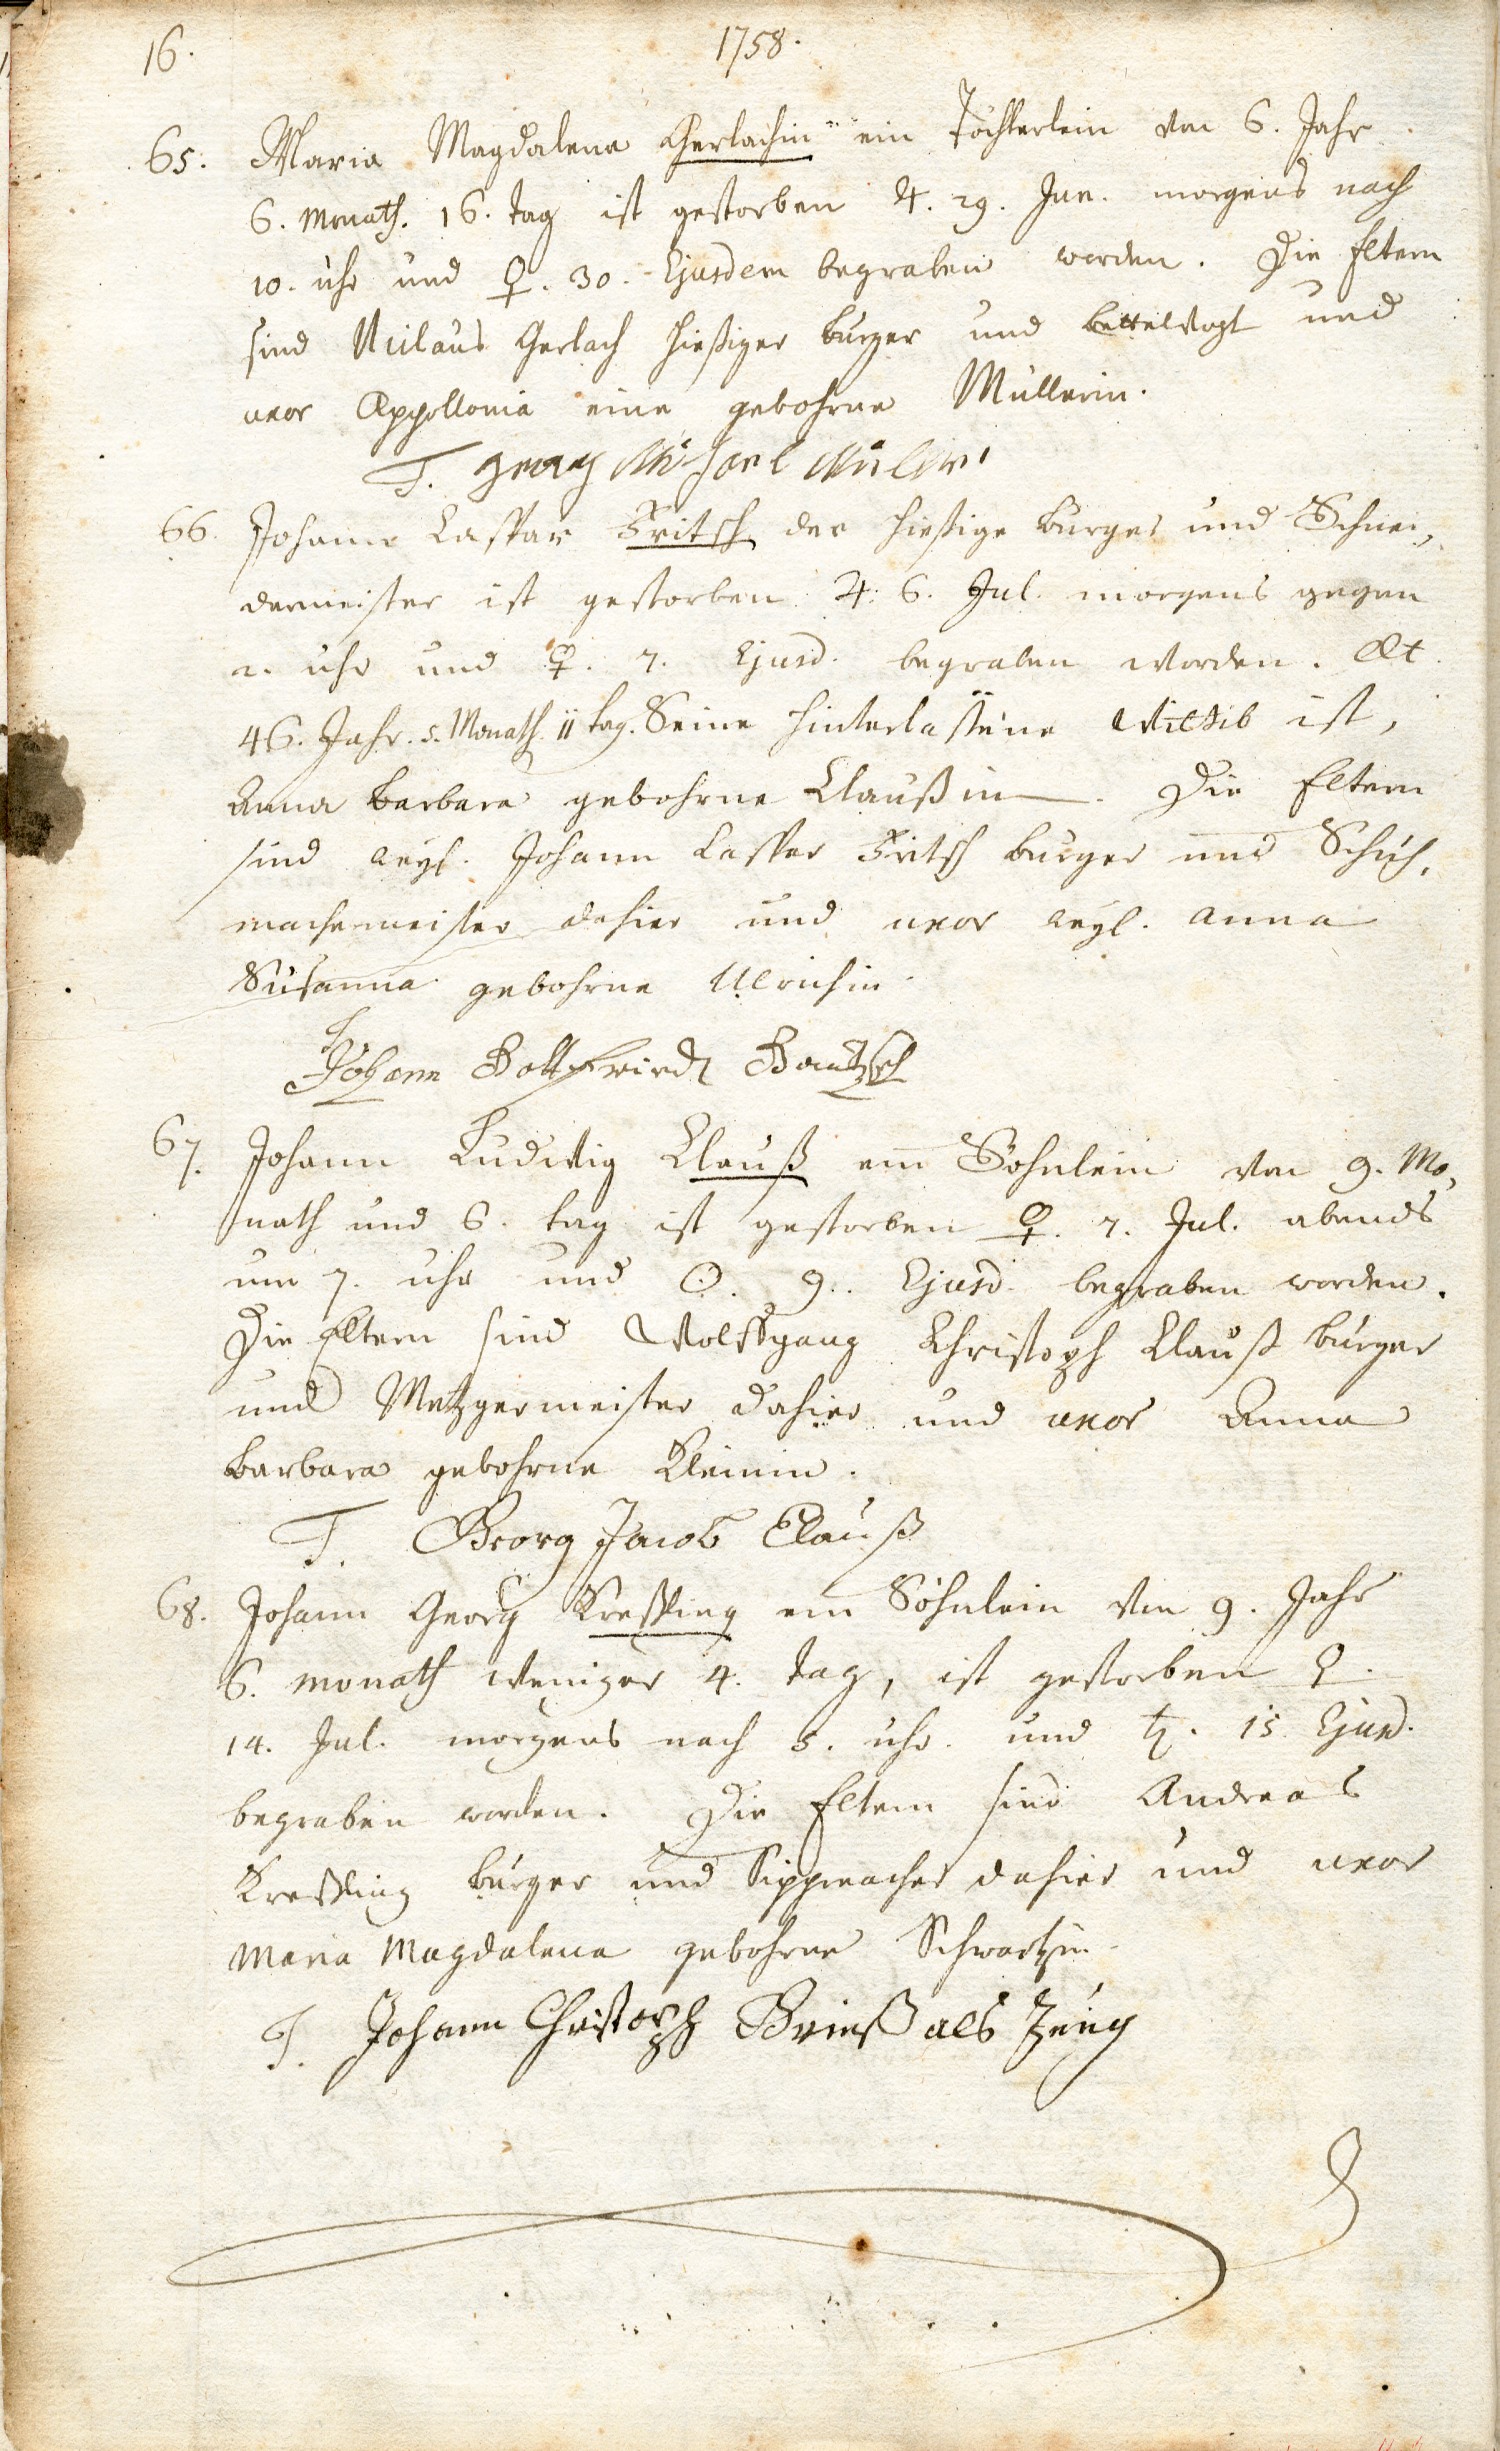 16.
1758.
65. Maria Magdalena Gerlachin ein Töchterlein von 6. Jahr
6. Monath. 16. tag ist gestorben ♃. 29. Jun. morgens nach
10. uhr und ♀. 30. Ejusdem begraben worden. Die Eltern
sind Niclaus Gerlach hießiger burger und bettelvogt und
uxor Appollonia eine gebohrne Müllerin.
T. georg Michael Müller
66. Johann Caspar Fritsch der hießige burger und Schnei„
dermeister ist gestorben ♃. 6. Jul. morgens gegen
2. uhr und ♀. 7. Ejusd. begraben worden. Æt.
46. Jahr. 5. Monath. 11 tag. Seine hinterlassene Wittib ist,
Anna barbara gebohrne Claußin. Die Eltern
sind weyl. Johann Casper Fritsch burger und Schuh„
machermeister dahier und uxor weyl. Anna
Susanna gebohrne Ulrichin
Johann Gottfriedt
67. Johann Ludwig Clauß ein Söhnlein von 9. Mo„
nath und 6. tag ist gestorben ♀. 7. Jul. abends
um 7. uhr und ☉. 9. Ejusd. begraben worden.
Die Eltern sind Wolffgang Christoph Clauß burger
und Metzgermeister dahier und uxor Anna
barbara gebohrne Kleinin.
T. Georg Jacob Clauß
68. Johann Georg Kreßling ein Söhnlein von 9. Jahr
6. monath weniger 4. tag, ist gestorben ♀.
14. Jul. morgens nach 5. uhr. und ♄. 15 Ejusd.
begraben worden. Die Eltern sind Andreas
Kreßling burger und Sippmacher dahier und uxor
Maria Magdalena gebohrne Schwartzin.
T. Johann Christoph Brieß als Zeug